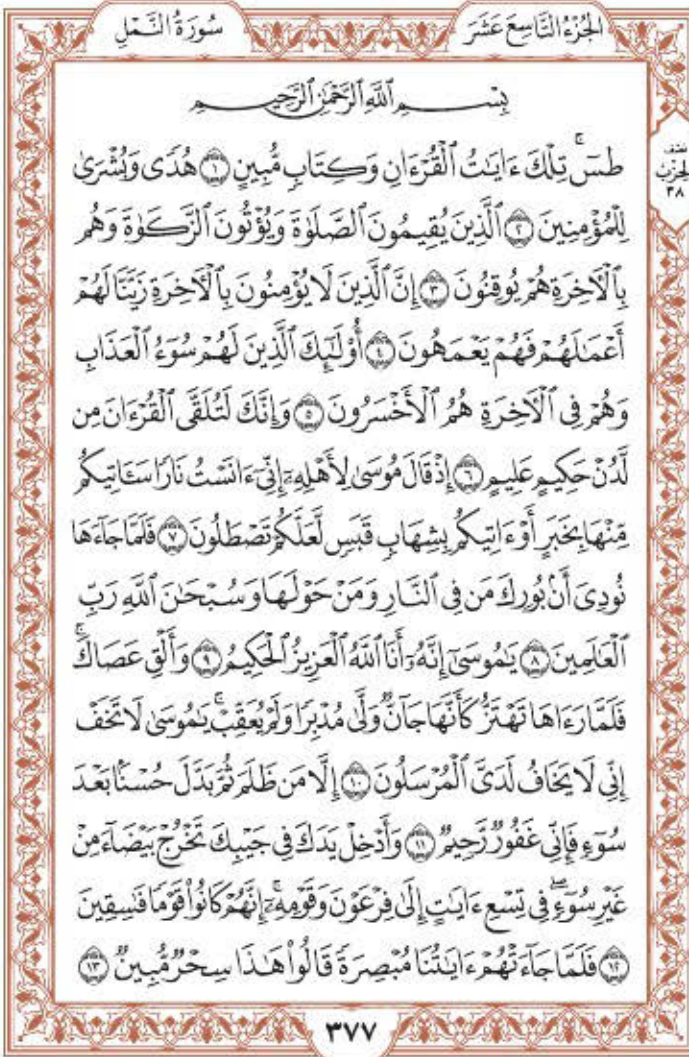 الجُزْءُ التَّاسِعَ عَشَرَ
سُورَةُ النَّمْلِ
بِسْمِ ٱللَّهِ ٱلرَّحْمَٰنِ ٱلرَّحِيمِ
طسٓۚ تِلْكَ ءَايَٰتُ ٱلْقُرْءَانِ وَكِتَابٖ مُّبِينٍ ١ هُدٗى وَبُشْرَىٰ
نصف الحزب ٣٨
لِلْمُؤْمِنِينَ ٢ ٱلَّذِينَ يُقِيمُونَ ٱلصَّلَوٰةَ وَيُؤْتُونَ ٱلزَّكَوٰةَ وَهُم
بِٱلْأٓخِرَةِ هُمْ يُوقِنُونَ ٣ إِنَّ ٱلَّذِينَ لَا يُؤْمِنُونَ بِٱلْأٓخِرَةِ زَيَّنَّا لَهُمْ
أَعْمَٰلَهُمْ فَهُمْ يَعْمَهُونَ ٤ أُوْلَٰٓئِكَ ٱلَّذِينَ لَهُمْ سُوٓءُ ٱلْعَذَابِ
وَهُمْ فِي ٱلْأٓخِرَةِ هُمُ ٱلْأَخْسَرُونَ ٥ وَإِنَّكَ لَتُلَقَّى ٱلْقُرْءَانَ مِن
لَّدُنْ حَكِيمٍ عَلِيمٍ ٦ إِذْ قَالَ مُوسَىٰ لِأَهْلِهِۦٓ إِنِّيٓ ءَانَسْتُ نَارٗا سَـَٔاتِيكُم
مِّنْهَا بِخَبَرٍ أَوْ ءَاتِيكُم بِشِهَابٖ قَبَسٖ لَّعَلَّكُمْ تَصْطَلُونَ ٧ فَلَمَّا جَآءَهَا
نُودِيَ أَنۢ بُورِكَ مَن فِي ٱلنَّارِ وَمَنْ حَوْلَهَا وَسُبْحَٰنَ ٱللَّهِ رَبِّ
ٱلْعَٰلَمِينَ ٨ يَٰمُوسَىٰٓ إِنَّهُۥٓ أَنَا ٱللَّهُ ٱلْعَزِيزُ ٱلْحَكِيمُ ٩ وَأَلْقِ عَصَاكَۚ
فَلَمَّا رَءَاهَا تَهْتَزُّ كَأَنَّهَا جَآنّٞ وَلَّىٰ مُدْبِرٗا وَلَمْ يُعَقِّبْۚ يَٰمُوسَىٰ لَا تَخَفْ
إِنِّي لَا يَخَافُ لَدَيَّ ٱلْمُرْسَلُونَ ١٠ إِلَّا مَن ظَلَمَ ثُمَّ بَدَّلَ حُسْنَۢا بَعْدَ
سُوٓءٖ فَإِنِّي غَفُورٞ رَّحِيمٞ ١١ وَأَدْخِلْ يَدَكَ فِي جَيْبِكَ تَخْرُجْ بَيْضَآءَ مِنْ
غَيْرِ سُوٓءٖۖ فِي تِسْعِ ءَايَٰتٍ إِلَىٰ فِرْعَوْنَ وَقَوْمِهِۦٓۚ إِنَّهُمْ كَانُواْ قَوْمٗا فَٰسِقِينَ
١٢ فَلَمَّا جَآءَتْهُمْ ءَايَٰتُنَا مُبْصِرَةٗ قَالُواْ هَٰذَا سِحْرٞ مُّبِينٞ ١٣
٣٧٧